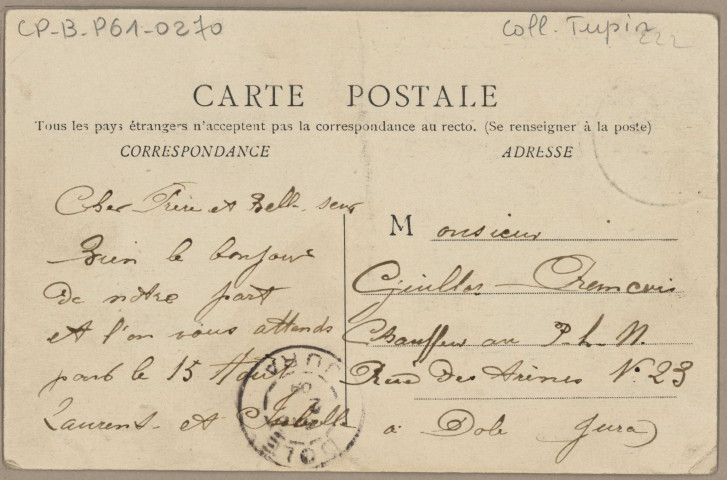 CP-B-P61-0270
Coll. Tupin
222
CARTE POSTALE
Tous les pays étrangers n'acceptent pas la correspondance au recto. (Se renseigner à la poste)
CORRESPONDANCE
ADRESSE
Cher Frère et Belle seur
Bien le bonjour
de notre part
et l'on vous attends
pour le 15 Aout
Laurent et Isabelle
Monsieur
Chauffeur au P. L. M.
Rue Des Arènes N. 23
a Dole (Jura)
DOLE
JURA